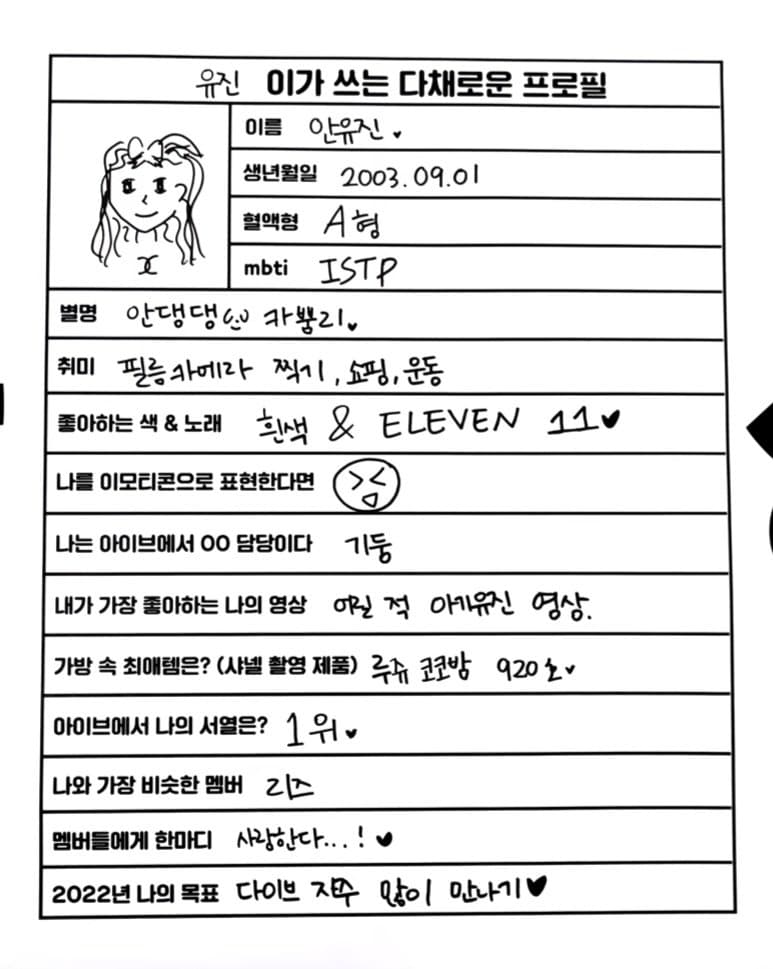 유진 이가 쓰는 다채로운 프로필
이름 안유진♥
생년월일 2003.09.01
혈액형 A형
mbti ISTP
별명 안댕댕 카뿜리♥
취미 필름카메라 찍기, 쇼핑, 운동
좋아하는 색 & 노래 흰색 & ELEVEN 11♥
나를 이모티콘으로 표현한다면
나는 아이브에서 OO 담당이다 기둥
내가 가장 좋아하는 나의 영상 어릴 적 아기유진 영상.
가방 속 최애템은? (샤넬 촬영 제품) 루쥬 코코밤 920호♥
아이브에서 나의 서열은? 1위♥
나와 가장 비슷한 멤버 리즈
멤버들에게 한마디 사랑한다...! ♥
2022년 나의 목표 다이브 자주 많이 만나기♥